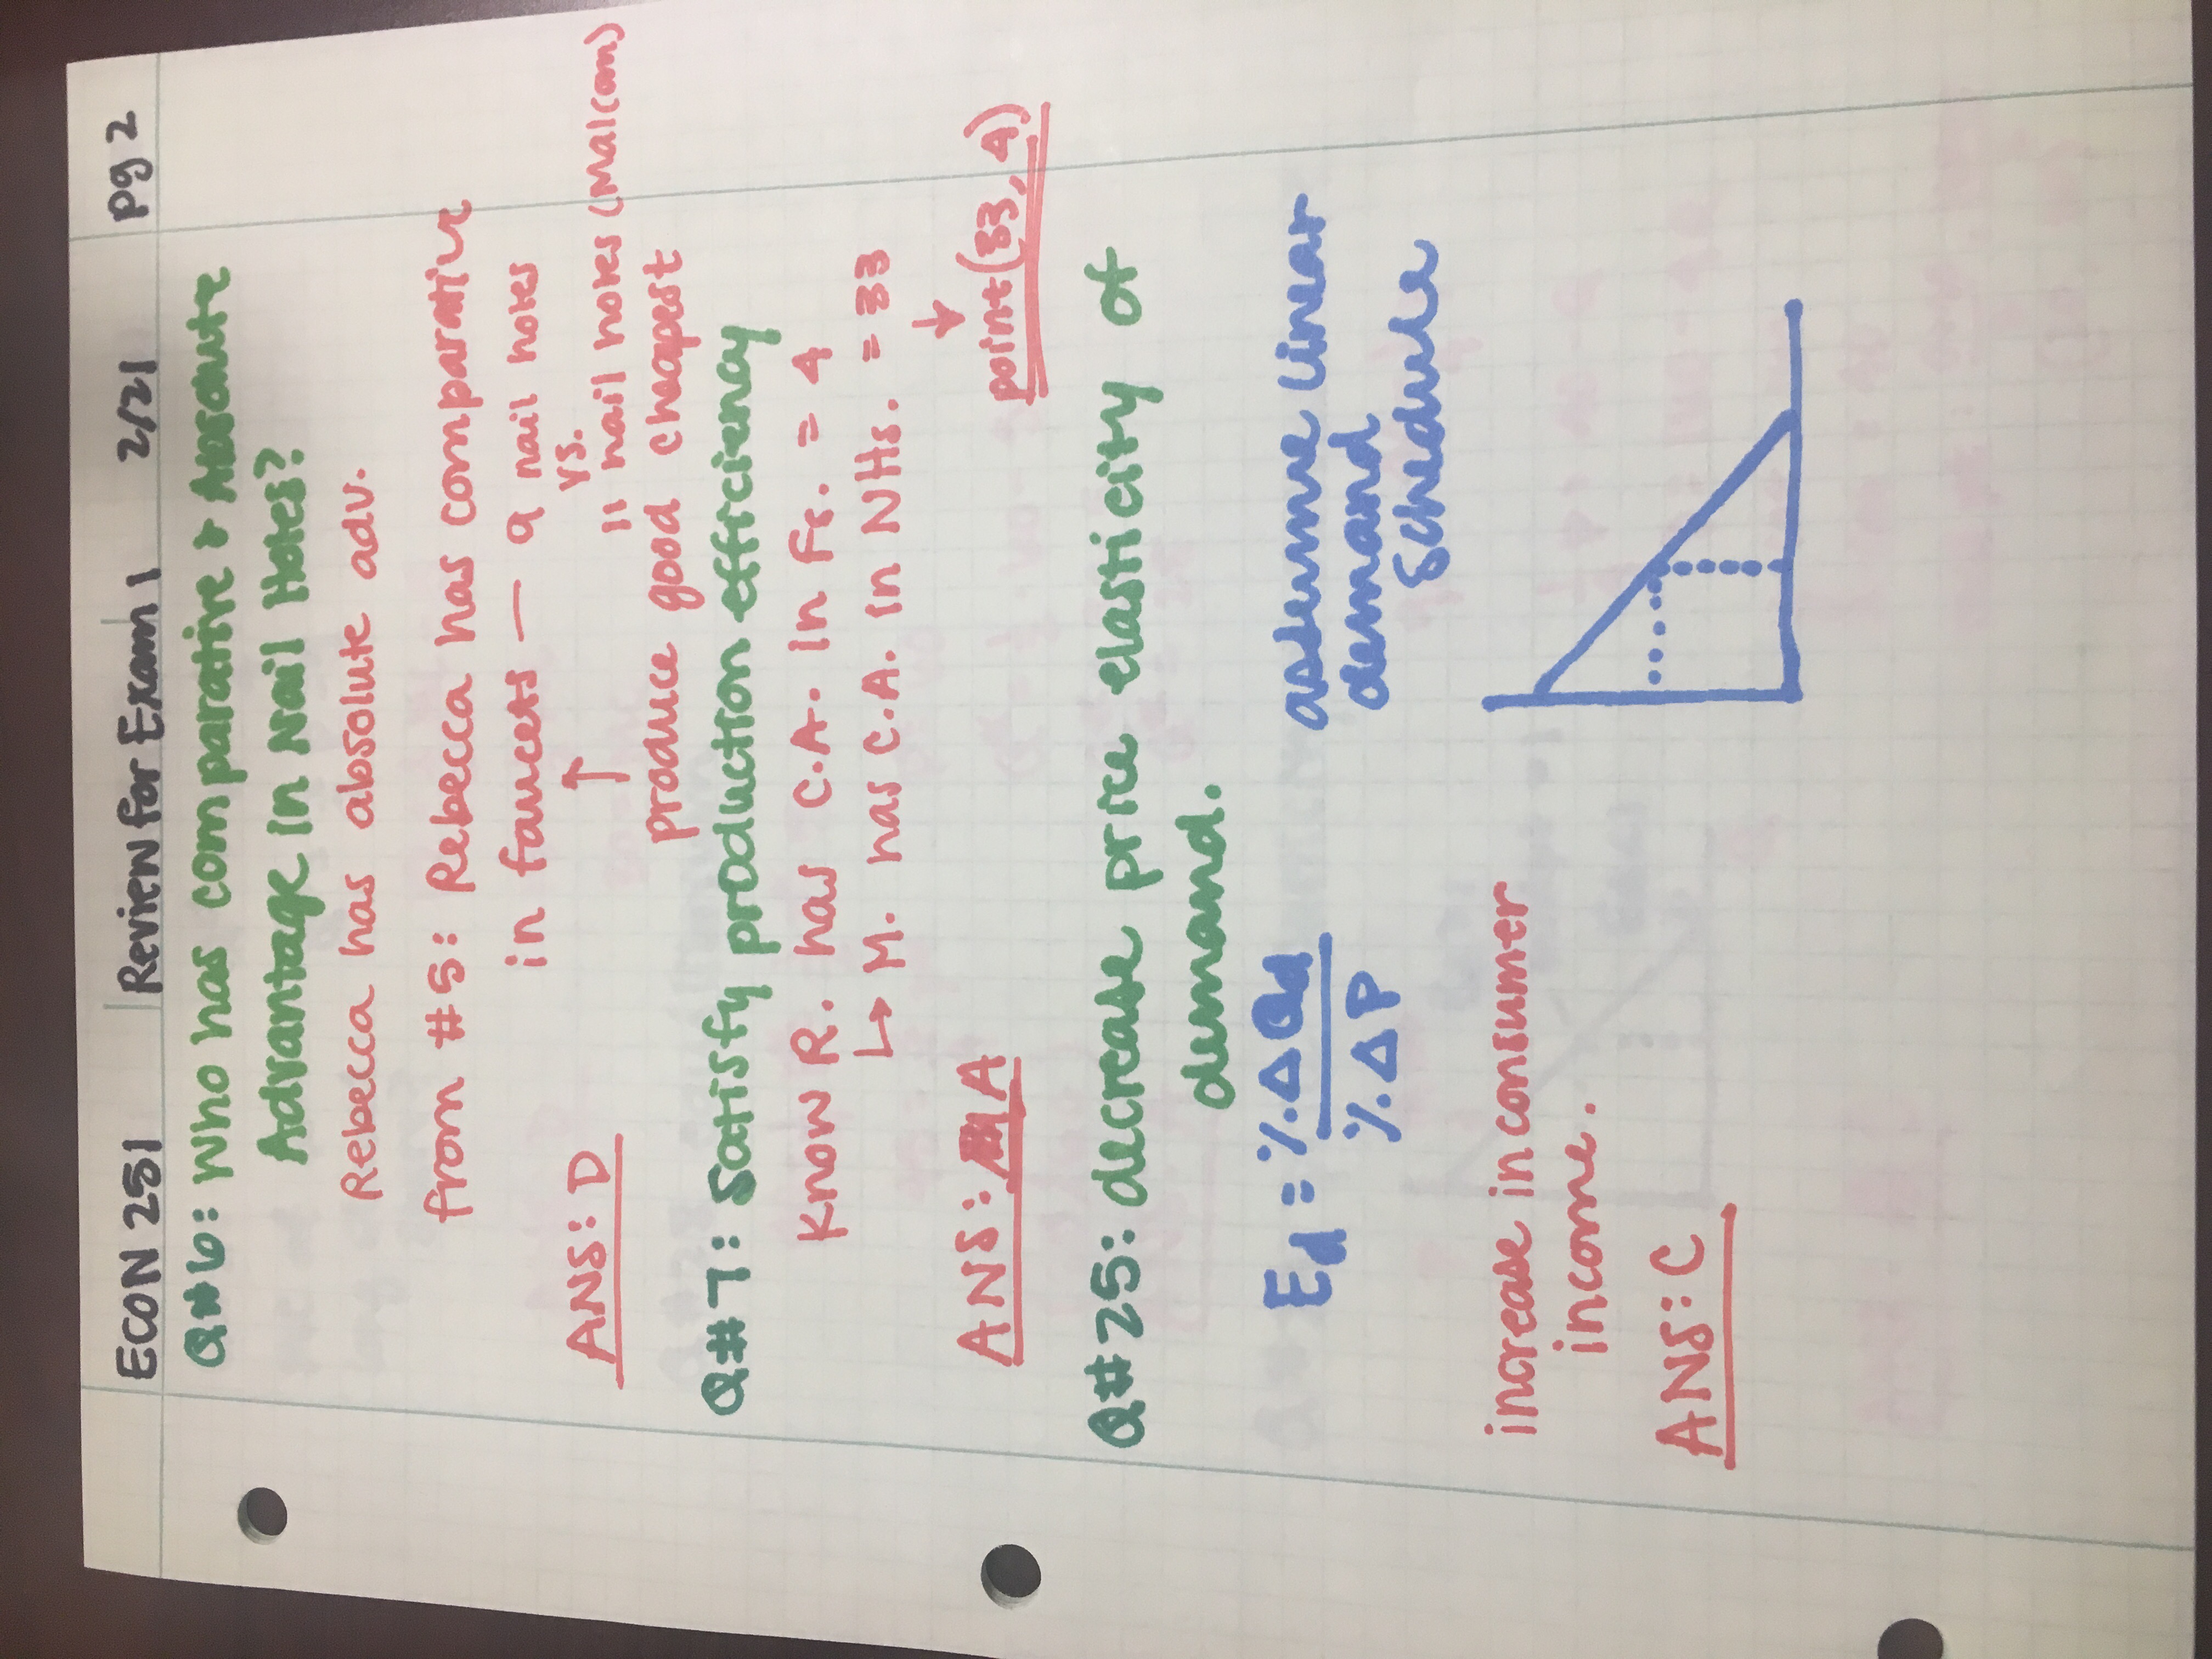 ECON 251 Review for Exam 1 2/21 pg 2
Q#6: Who has comparative & Absolute
Advantage in Nail Holes?
Rebecca has absolute adv.
from #5: Rebecca has comparative
in faucets — 9 nail holes
vs.
ANS: D
11 nail holes (Malcom)
produce good cheapest
Q#7: Satisfy production efficiency
Know R. has C.A. in Fs. = 4
↳ M. has C.A. in NHs. = 33
ANS: A
point (33, 4)
Q#25: decrease price elasticity of
demand.
Ed = %ΔQd
%ΔP
assume linear
demand
schedule
increase in consumer
income.
ANS: C